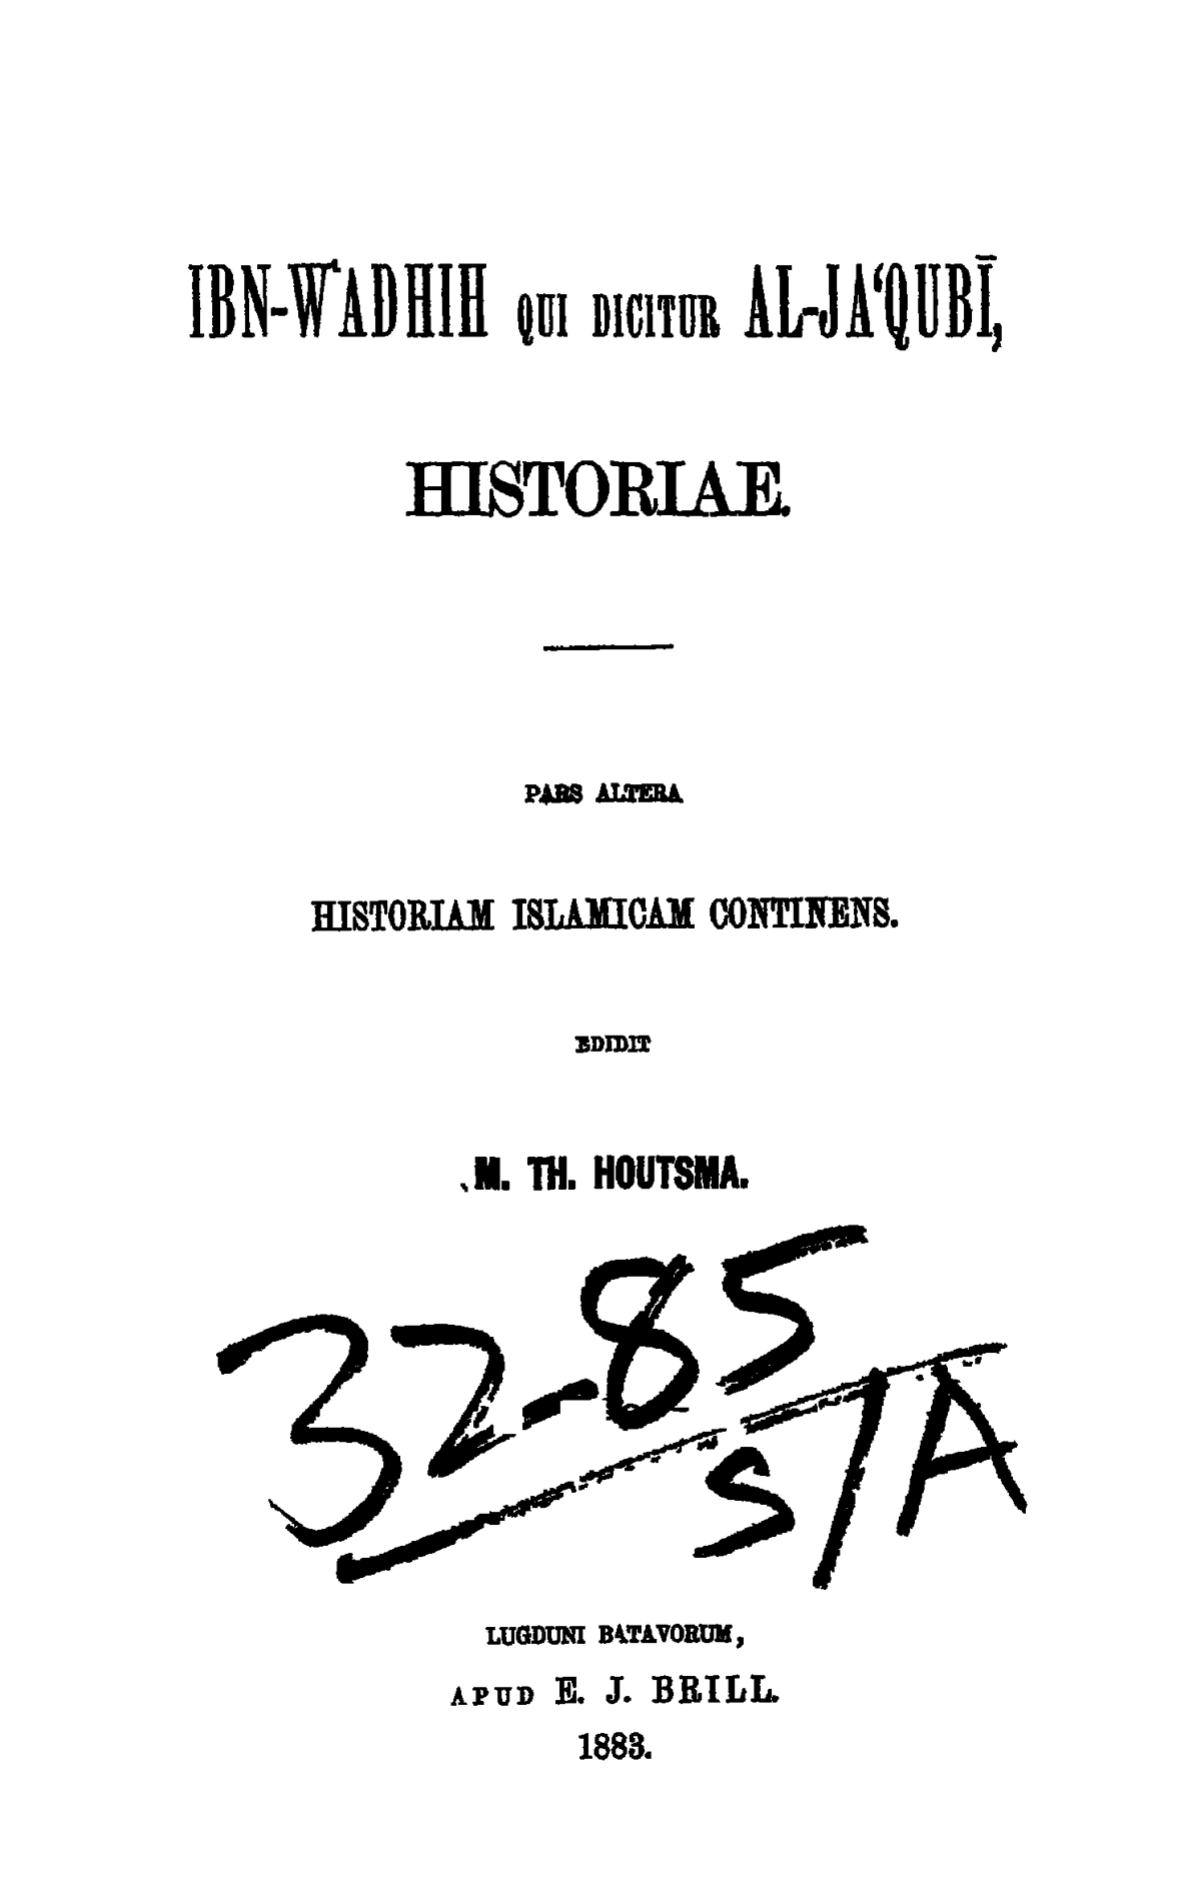 IBN-WADHIH QUI DICITUR AL-JA‘QUBĪ,
HISTORIAE.
PARS ALTERA
HISTORIAM ISLAMICAM CONTINENS.
EDIDIT
M. TH. HOUTSMA.
32-85
S/A
LUGDUNI BATAVORUM,
APUD E. J. BRILL.
1883.